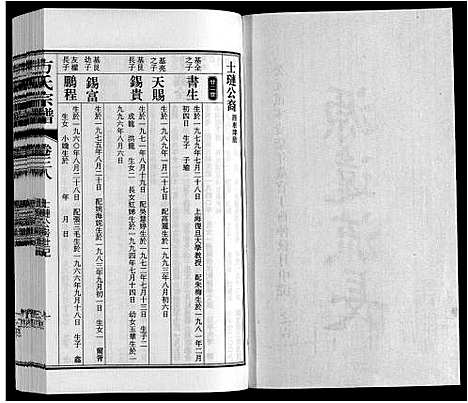 士㻽公裔
廿二世
基全之子
書生
生於一九七九年七月二十二日 上海復旦大學教授 配朱梅生於一九八一年二月
初四日 生子 子瑜
基亮之子
天賜
生於一九八九年一月二十日 配高麗生於一九九三年八月六日
基良長子
錫貴
生於一九七一年八月十九日 配吳慧婷生於一九七二年七月十三日 生子二
成龍 洪龍 生女二 長女紅娣生於一九九四年七月十四日 幼女玉華生於一
九九六年八月六日
基良幼子
錫富
生於一九七五年八月二十日 配姚海妮生於一九八三年九月初一日 生女一
友權長子
鵬程
生於一九六〇年八月二十八日 配張三毛生於一九六六年九月十八日 生子 鑫
生女 小嬌生於 年 月 日
方氏宗譜
卷三八